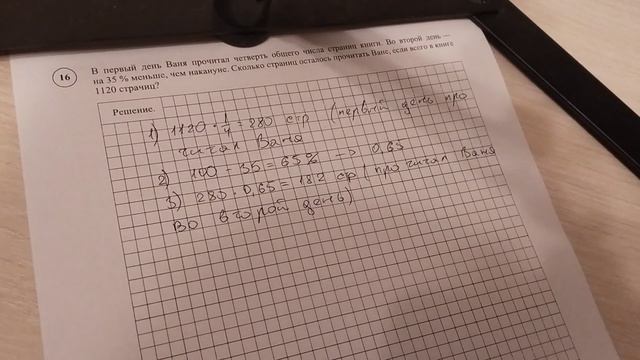 16
В первый день Ваня прочитал четверть общего числа страниц книги. Во второй день —
на 35 % меньше, чем накануне. Сколько страниц осталось прочитать Ване, если всего в книге
1120 страниц?
Решение.
1) 1120 · 1/4 = 280 стр (первый день про
читал Ваня
2) 100 - 35 = 65% -> 0,65
3) 280 · 0,65 = 182 ср (прочитал Ваня
во второй день)